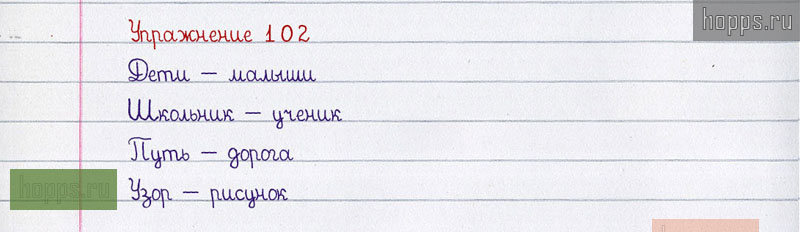 hopps.ru
Упражнение 102
Дети — малыши
Школьник — ученик
Путь — дорога
hopps.ru
Узор — рисунок